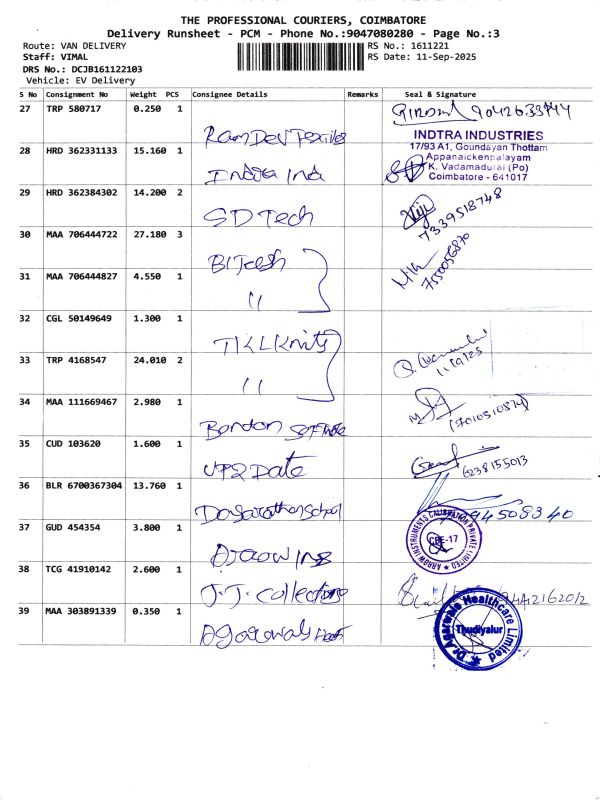 THE PROFESSIONAL COURIERS, COIMBATORE
Delivery Runsheet - PCM - Phone No.:9047080280 - Page No.:3
Route: VAN DELIVERY
RS No.: 1611221
Staff: VIMAL
RS Date: 11-Sep-2025
DRS No.: DCJB161122103
Vehicle: EV Delivery
S No Consignment No Weight PCS Consignee Details Remarks Seal & Signature
27 TRP 580717 0.250 1
RamDev Textiles
INDTRA INDUSTRIES
17/93 A1, Goundayan Thottam
Appanaickenpalayam
K. Vadamadurai (Po)
Coimbatore - 641017
28 HRD 362331133 15.160 1
India Ind
29 HRD 362384302 14.200 2
SD Tech
7339518748
30 MAA 706444722 27.180 3
BITech
7550056870
31 MAA 706444827 4.550 1
"
32 CGL 50149649 1.300 1
TKL Knits
11/9/25
33 TRP 4168547 24.010 2
"
34 MAA 111669467 2.980 1
(7010510874)
35 CUD 103620 1.600 1
UP2Date
6238155013
36 BLR 6700367304 13.760 1
37 GUD 454354 3.800 1
ARROW INSTRUMENTS CALIBRATION PRIVATE LIMITED
CBE-17
38 TCG 41910142 2.600 1
J.J. Collections
39 MAA 303891339 0.350 1
Dr.Agarwals Healthcare Limited
Thudiyalur